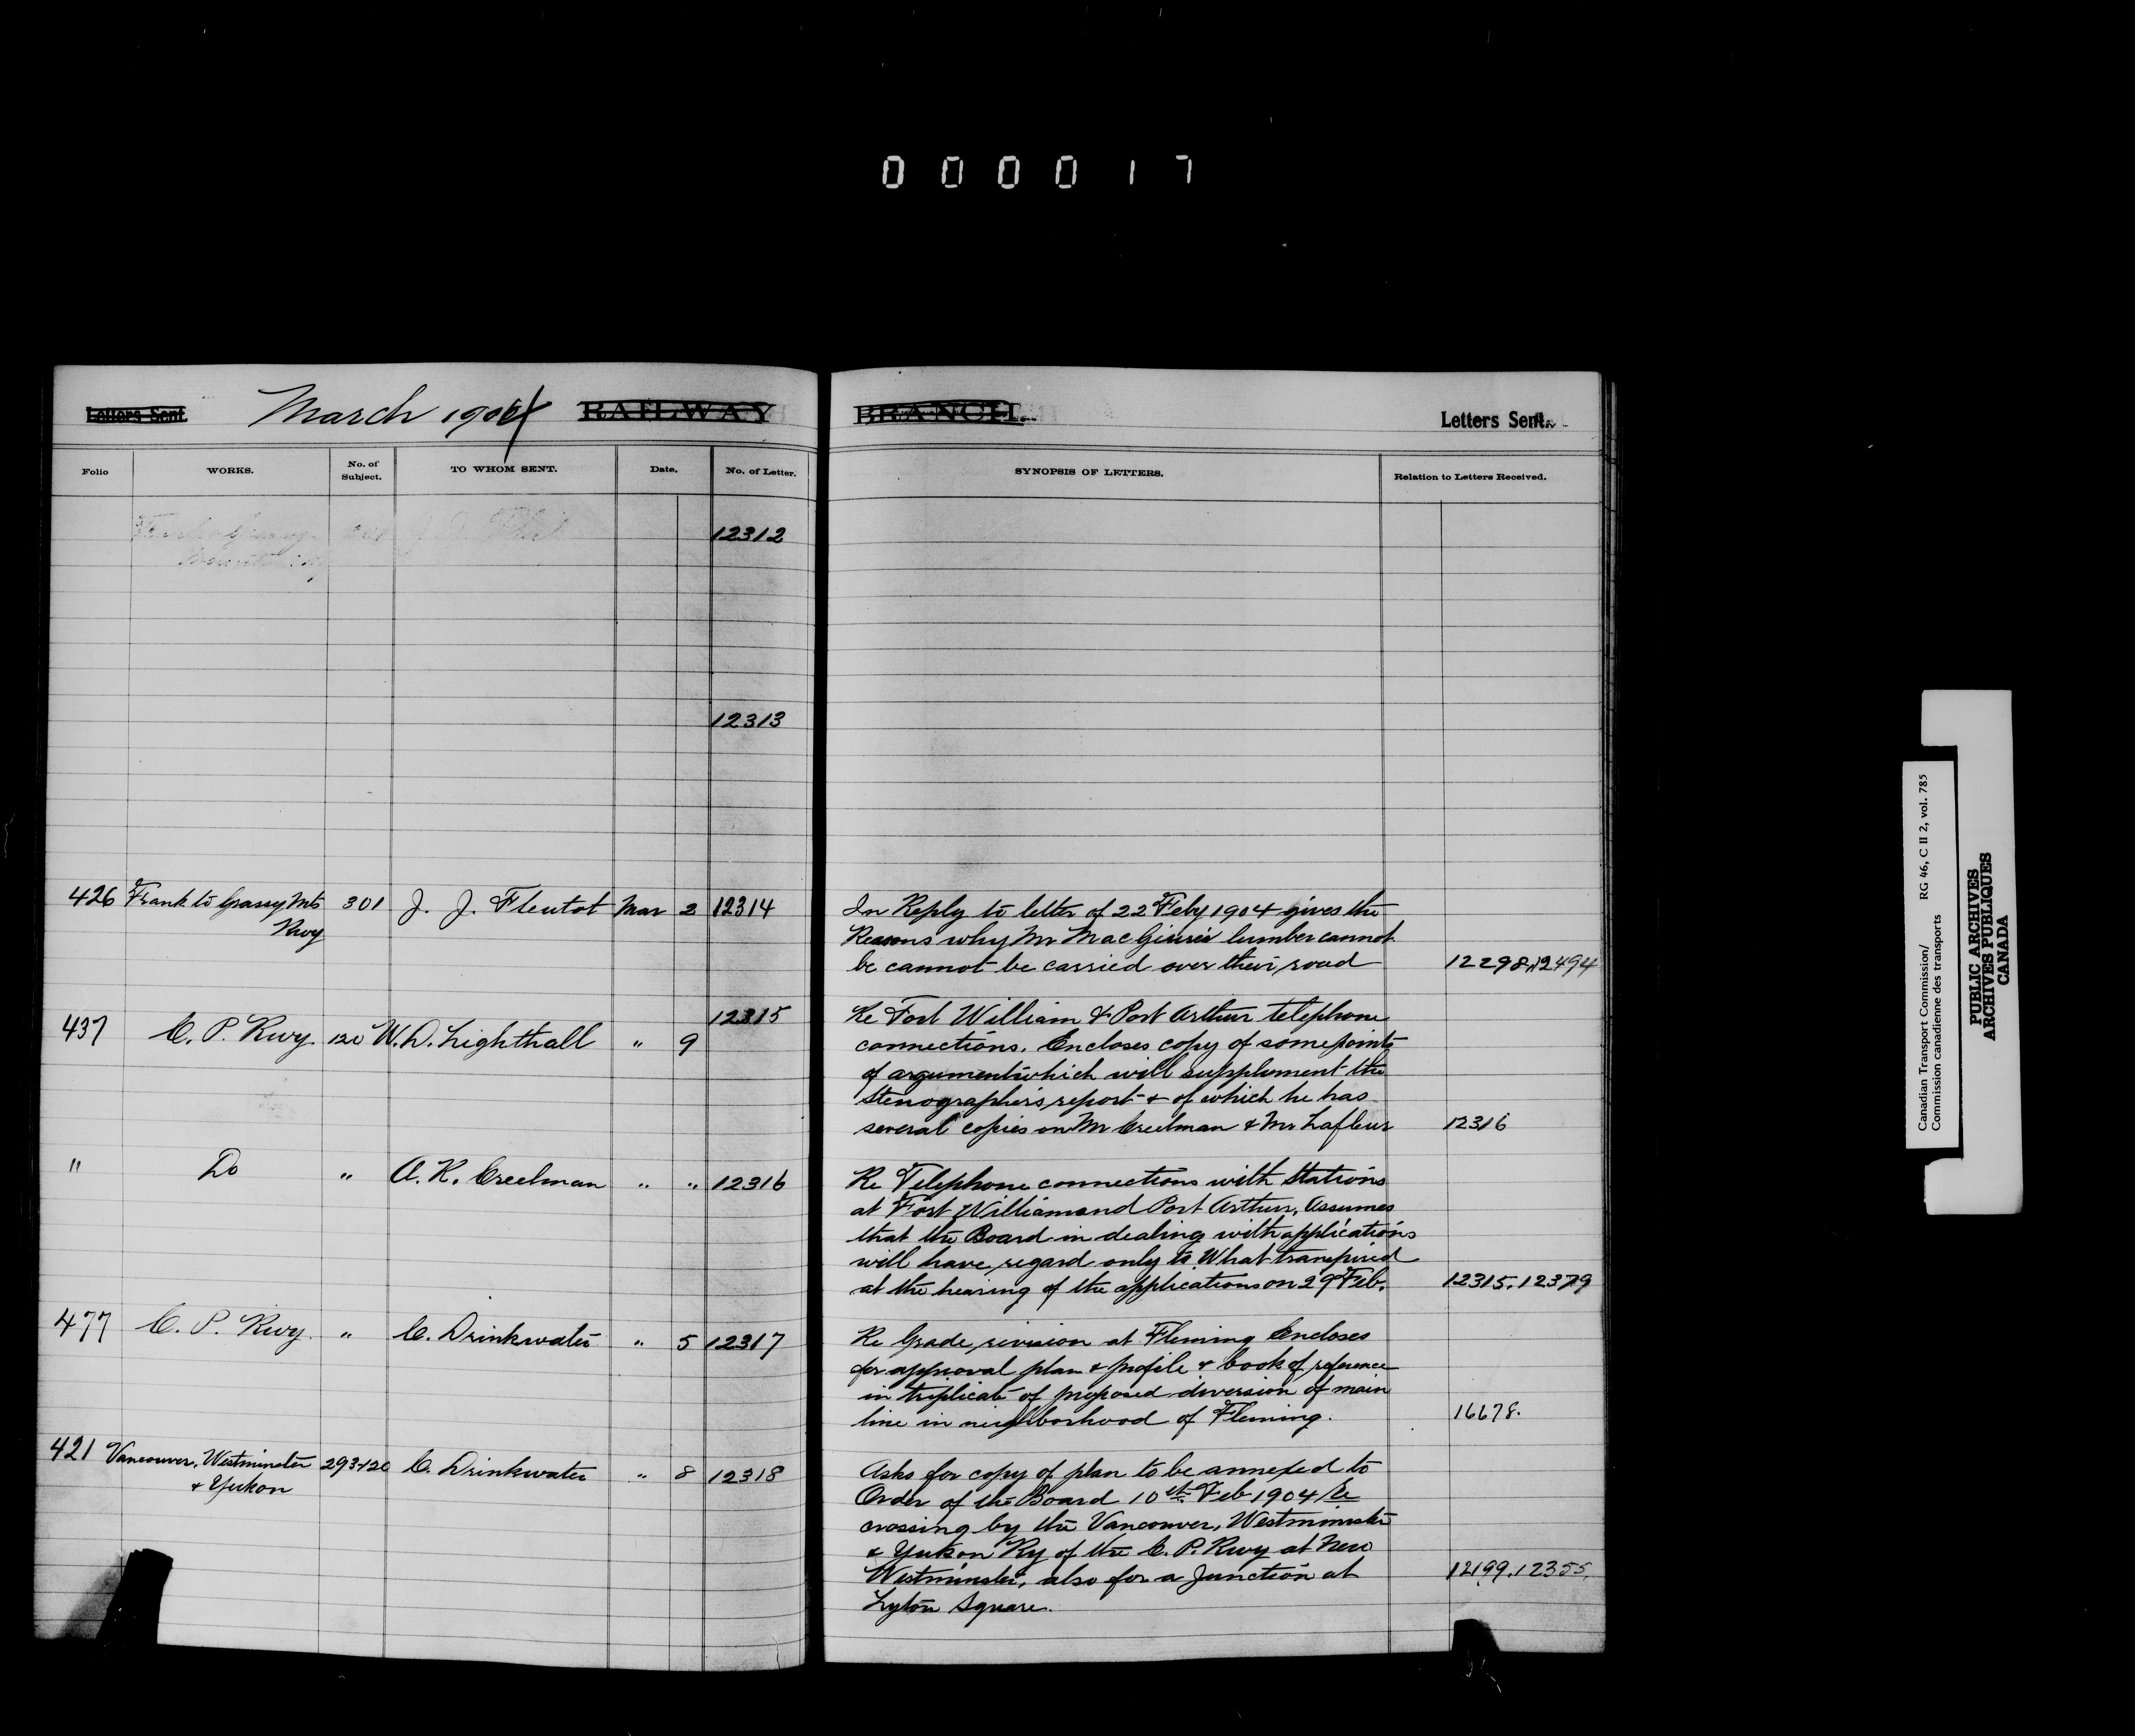 000017
Letters Sent.
March 1904
RAILWAY
BRANCH.
Letters Sent.
Folio WORKS. No. of Subject. TO WHOM SENT. Date. No. of Letter. SYNOPSIS OF LETTERS. Relation to Letters Received.
12312
12313
426 Frank to Grassy Mts 301 J. J. Fleutot Mar 2 12314 In Reply to letter of 22 Feby 1904 gives the
Rwy Reasons why Mr Mac lumber cannot
be cannot be carried over their road 12298.12494
12315 Re Fort William & Port Arthur telephone
437 C. P. Rwy. 120 W. D. Lighthall " 9 connections. Encloses copy of some points
of argument which will supplement the
Stenographers report & of which he has
several copies on Mr Creelman & Mr Lafleur 12316
" Do " A. R. Creelman " " 12316 Re Telephone connections with Stations
at Fort William and Port Arthur, Assumes
that the Board in dealing with applications
will have regard only to What transpired
at the hearing of the applications on 29 Feb. 12315.12379
477 C. P. Rwy. " C. Drinkwater " 5 12317 Re Grade revision at Fleming Encloses
for approval plan & profile & book of reference
in triplicate of proposed diversion of main
line in neighborhood of Fleming. 16678.
421 Vancouver, Westminster 293-120 C. Drinkwater " 8 12318 Asks for copy of plan to be annexed to
& Yukon Order of the Board 10th Feb 1904 Re
crossing by the Vancouver, Westminster
& Yukon Ry of the C. P. Rwy at New
Westminster, also for a Junction at 12199.12355.
Lyton Square.
Canadian Transport Commission/ RG 46, C II 2, vol. 785
Commission canadienne des transports
PUBLIC ARCHIVES
ARCHIVES PUBLIQUES
CANADA